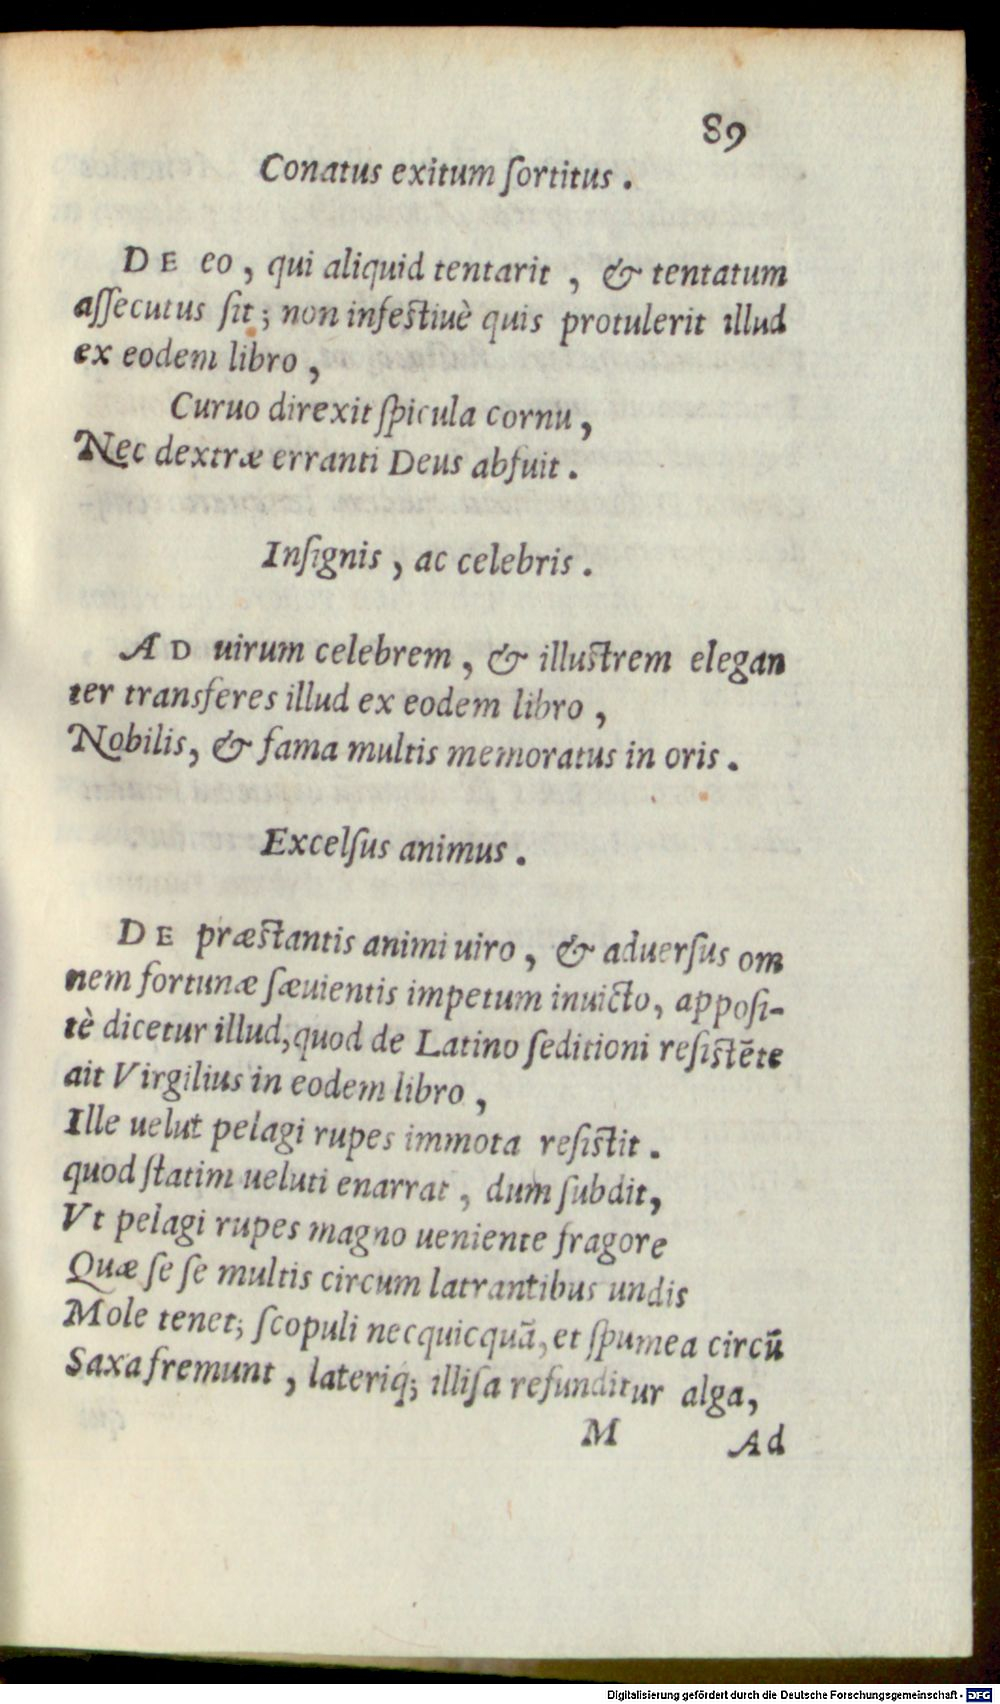 89
Conatus exitum ſortitus.
DE eo, qui aliquid tentarit, & tentatum
aſſecutus ſit; non infeſtiuè quis protulerit illud
ex eodem libro,
Curuo direxit ſpicula cornu,
Nec dextræ erranti Deus abfuit.
Inſignis, ac celebris.
AD uirum celebrem, & illuſtrem elegan
ter transferes illud ex eodem libro,
Nobilis, & fama multis memoratus in oris.
Excelſus animus.
DE præſtantis animi uiro, & aduerſus om
nem fortunæ ſæuientis impetum inuicto, appoſi-
tè dicetur illud, quod de Latino ſeditioni reſiſtẽte
ait Virgilius in eodem libro,
Ille uelut pelagi rupes immota reſiſtit.
quod ſtatim ueluti enarrat, dum ſubdit,
Vt pelagi rupes magno ueniente fragore
Quæ ſe ſe multis circum latrantibus undis
Mole tenet; ſcopuli necquicquã, et ſpumea circũ
Saxa fremunt, lateriq; illiſa refunditur alga,
M Ad
Digitalisierung gefördert durch die Deutsche Forschungsgemeinschaft - DFG